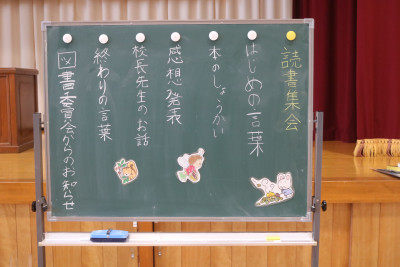 読書集会
はじめの言葉
本のしょうかい
感想発表
校長先生のお話
終わりの言葉
図書委員会からのお知らせ